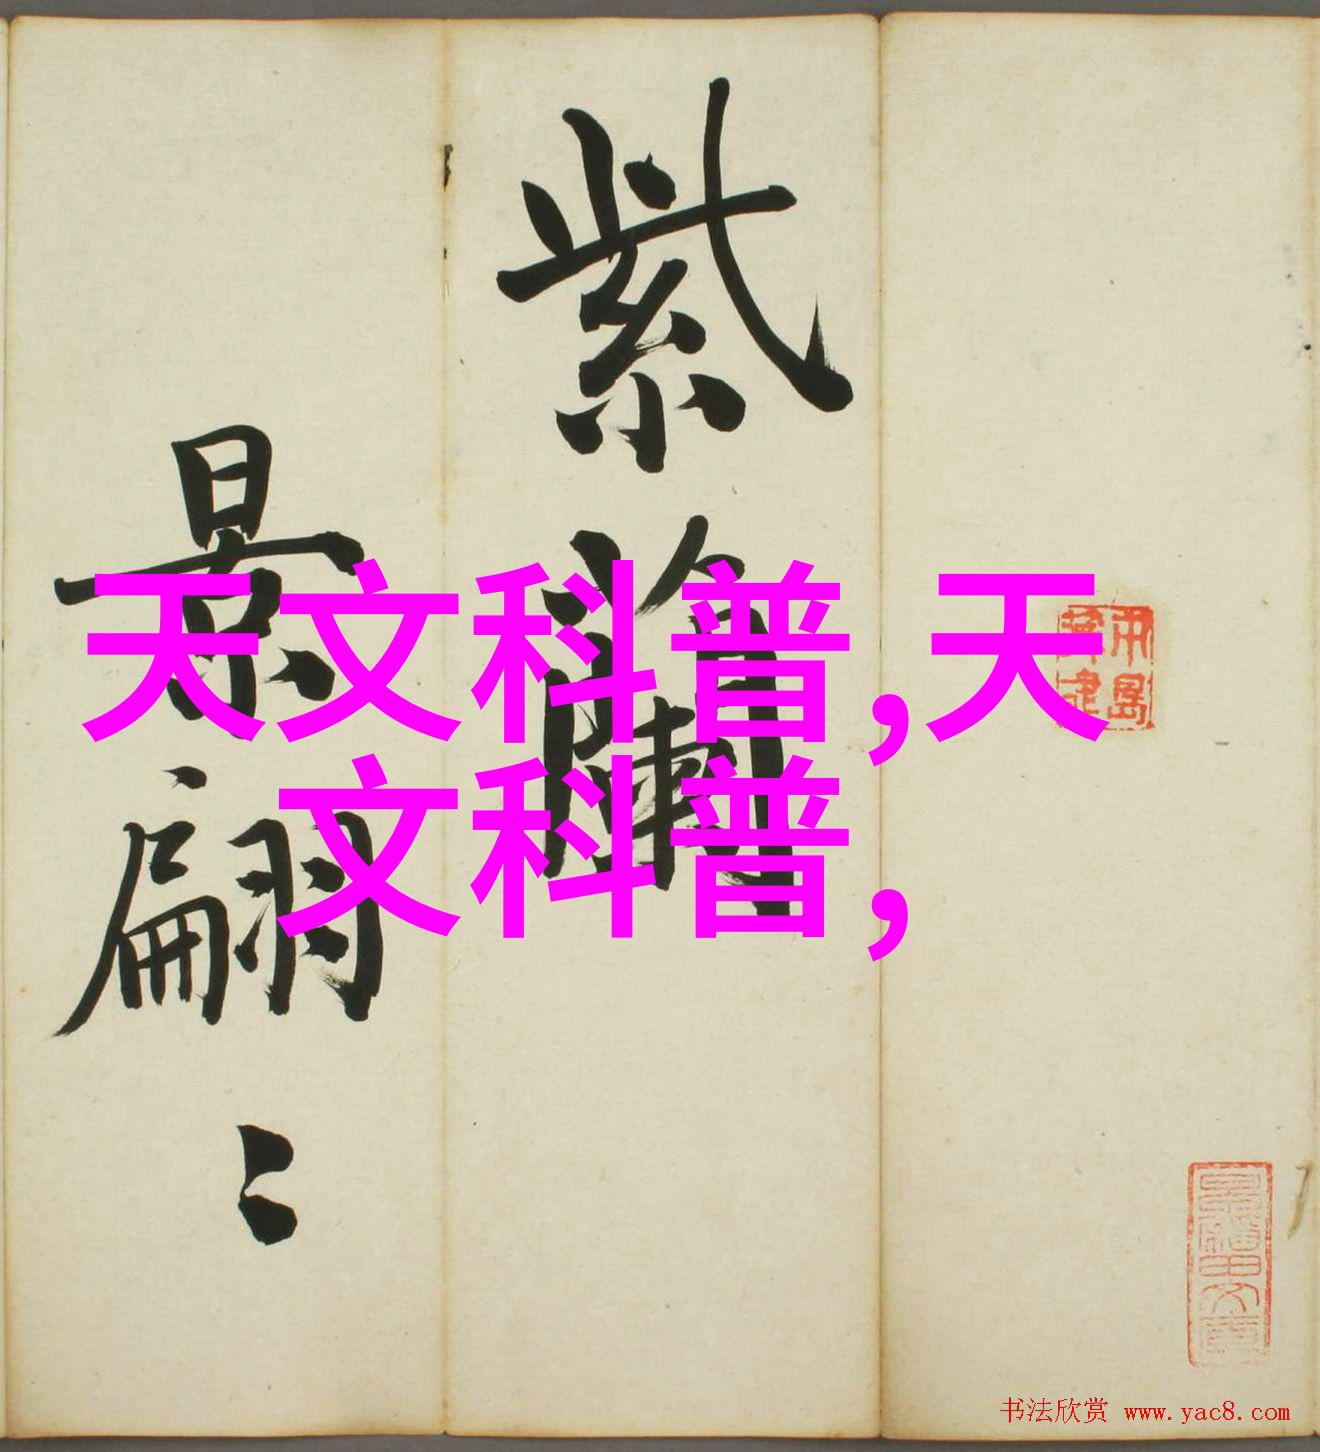 紫蘭
景翩〻
天文科普,天
文科普,
书法欣赏 www.yac8.com